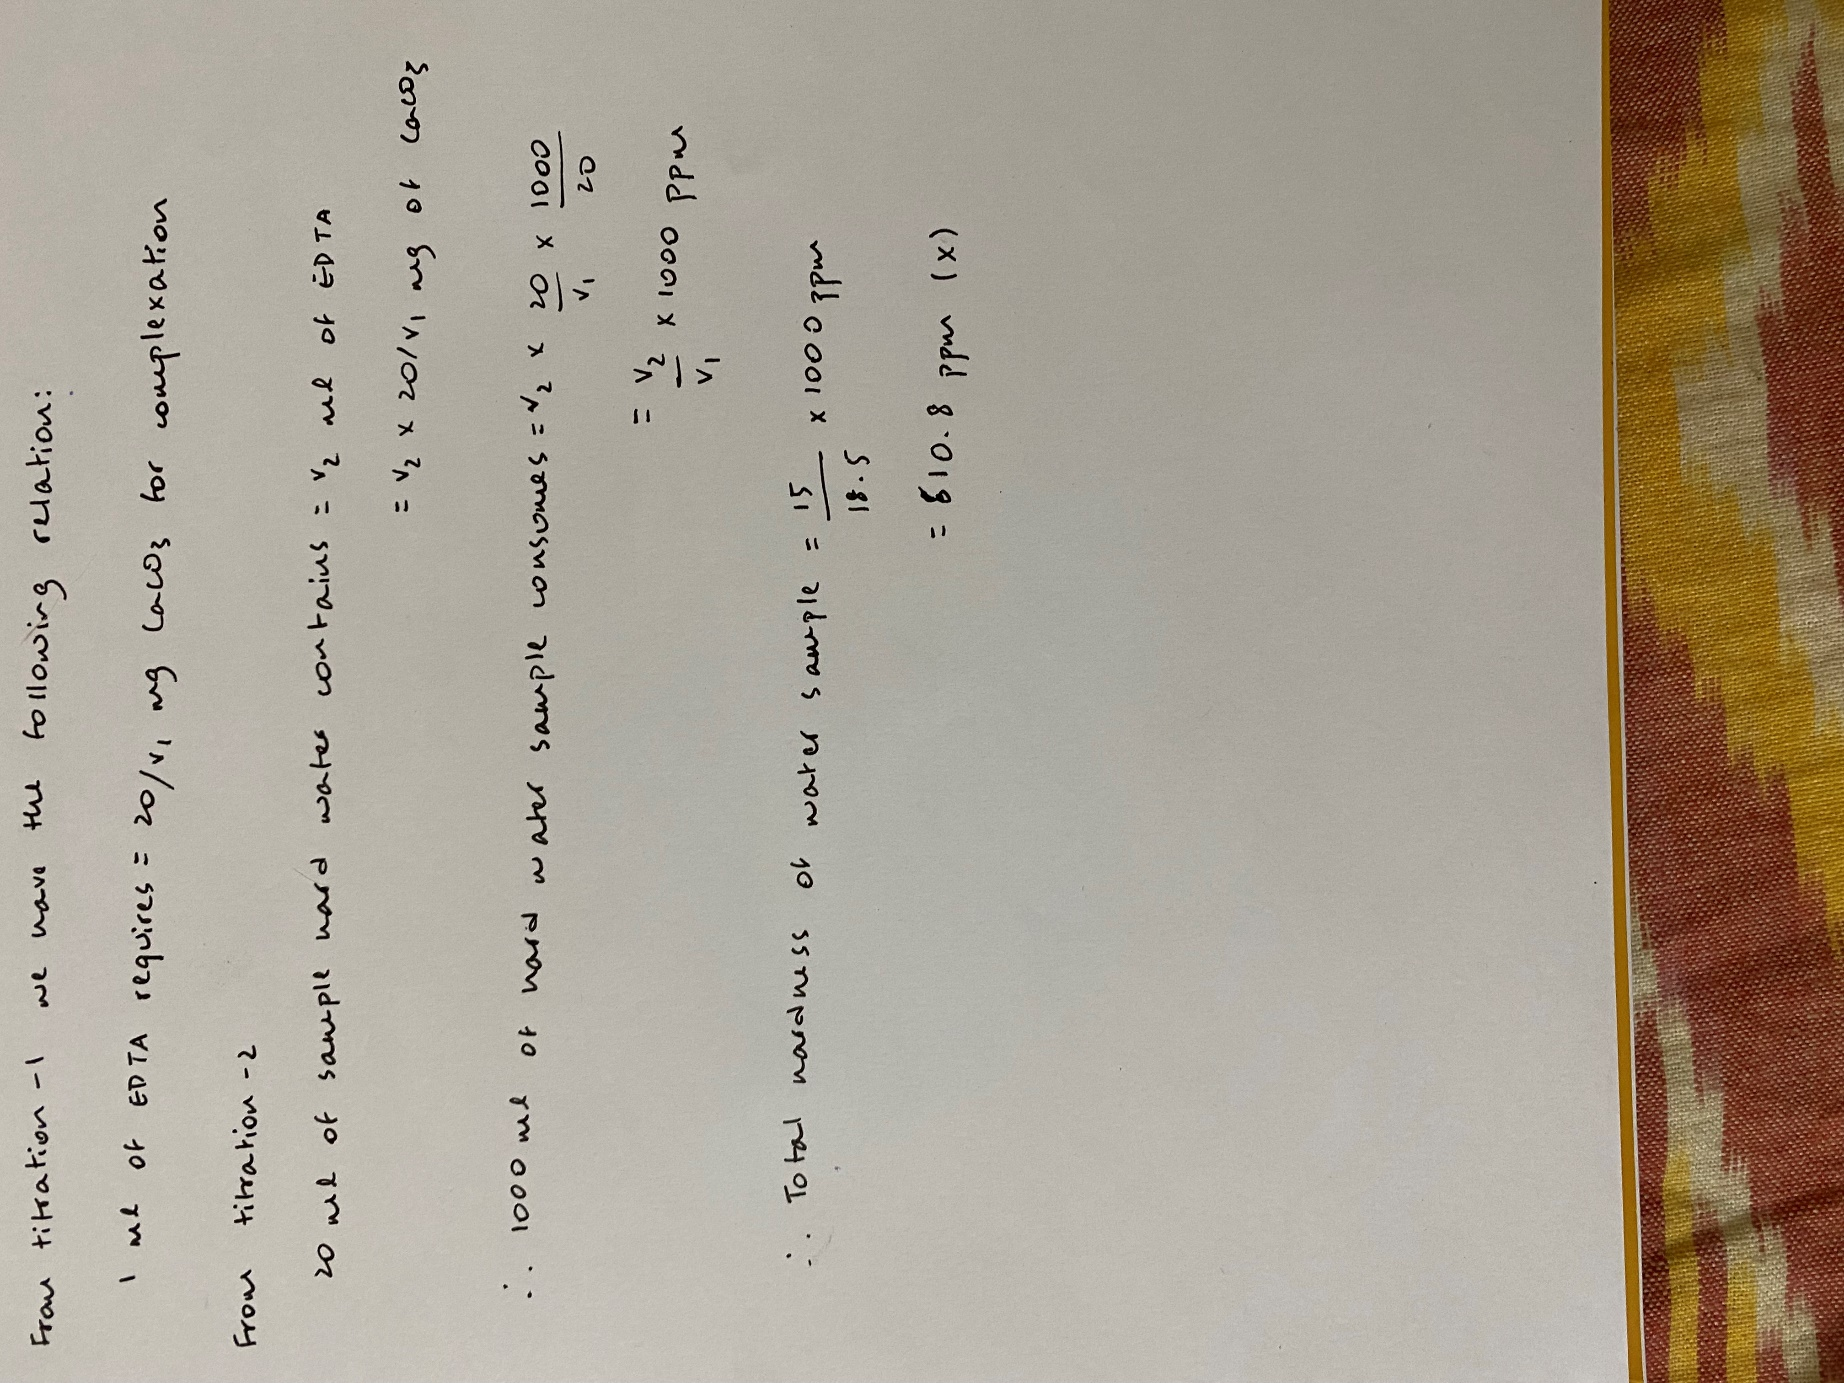 From titration -1 we have the following relation:
1 ml of EDTA requires = 20/V1 mg CaCO3 for complexation
From titration -2
20 ml of sample hard water contains = V2 ml of EDTA
= V2 x 20/V1 mg of CaCO3
∴ 1000 ml of hard water sample consumes = V2 x 20/V1 x 1000/20
= V2/V1 x 1000 ppm
∴ Total hardness of water sample = 15/18.5 x 1000 ppm
= 810.8 ppm (x)